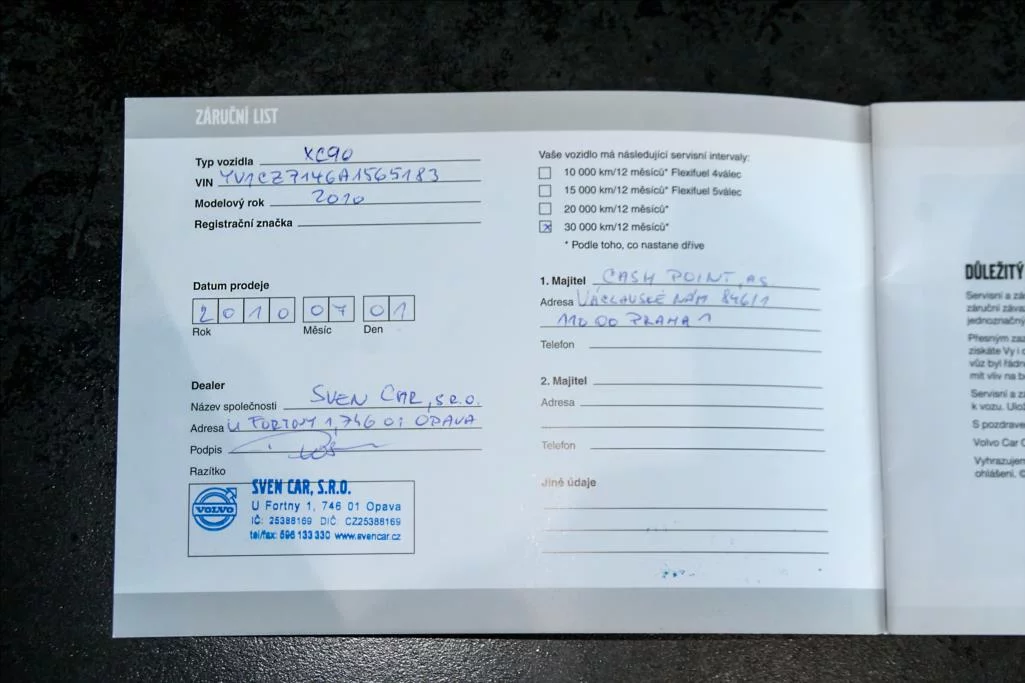 ZÁRUČNÍ LIST
Typ vozidla XC90
VIN YV1CZ7146A1565183
Modelový rok 2010
Registrační značka
Datum prodeje
2010 07 01
Rok Měsíc Den
Dealer
Název společnosti SVEN CAR, S.R.O.
Adresa U FORTNY 1, 746 01 OPAVA
Podpis
Razítko
VOLVO
SVEN CAR, S.R.O.
U Fortny 1, 746 01 Opava
IČ: 25388169 DIČ: CZ25388169
tel/fax: 596 133 330 www.svencar.cz
Vaše vozidlo má následující servisní intervaly:
10 000 km/12 měsíců* Flexifuel 4válec
15 000 km/12 měsíců* Flexifuel 5válec
20 000 km/12 měsíců*
30 000 km/12 měsíců*
* Podle toho, co nastane dříve
1. Majitel CASH POINT, AS
Adresa VÁCLAVSKÉ NÁM 846/1
110 00 PRAHA 1
Telefon
2. Majitel
Adresa
Telefon
Jiné údaje
DŮLEŽITÝ
Servisní a zá
záruční záva
jednoznačný
Přesným zaz
získáte Vy i d
vůz byl řádn
mít vliv na b
Servisní a zá
k vozu. Ulož
S pozdrave
Volvo Car C
Vyhrazujem
ohlášení. ©